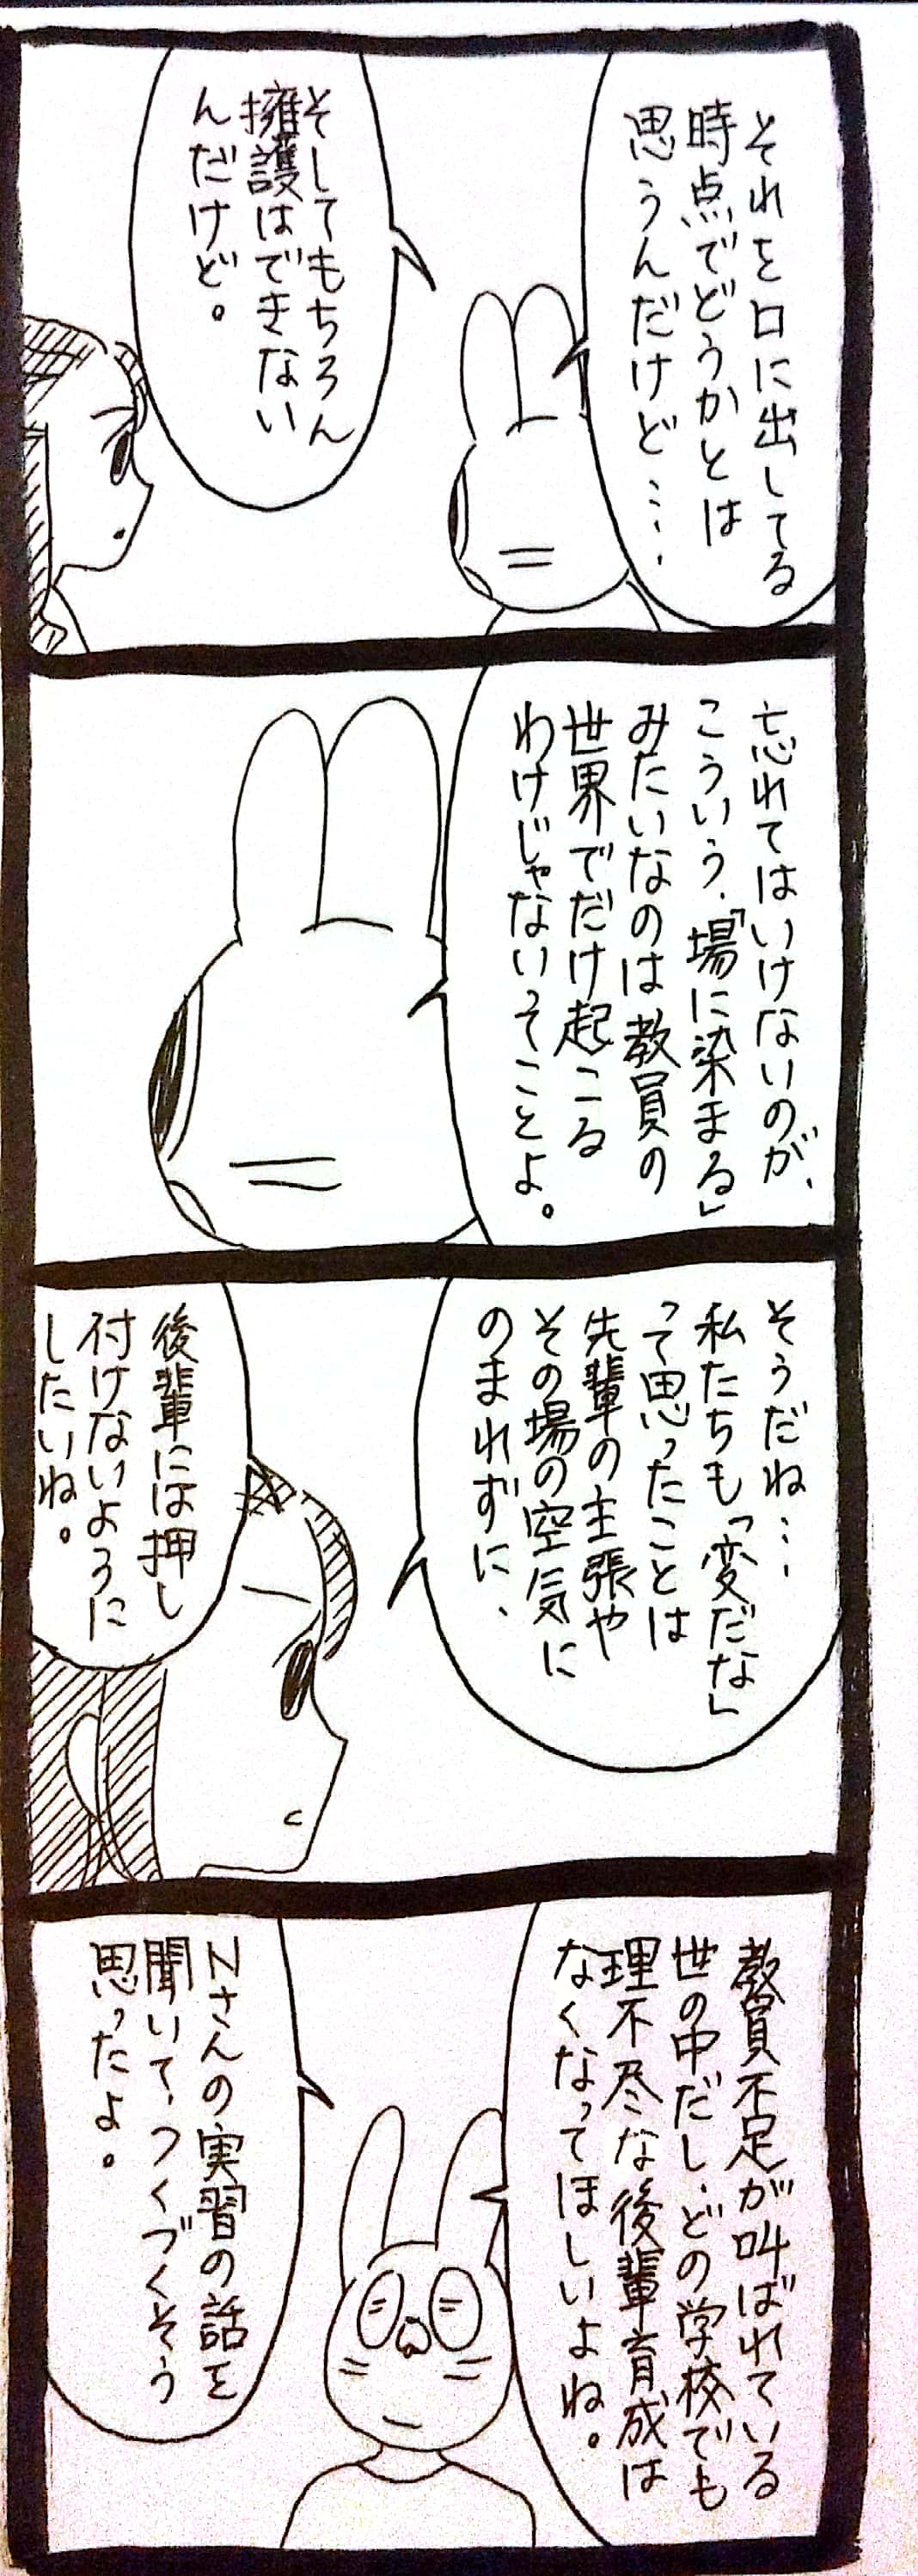 それを口に出してる
時点でどうかとは
思うんだけど…。
そしてもちろん
擁護はできない
んだけど。
忘れてはいけないのが、
こういう、「場に染まる」
みたいなのは教員の
世界でだけ起こる
わけじゃないってことよ。
そうだね…
私たちも「変だな」
って思ったことは
先輩の主張や
その場の空気に
のまれずに、
後輩には押し
付けないように
したいね。
教員不足が叫ばれている
世の中だし、どの学校でも
理不尽な後輩育成は
なくなってほしいよね。
Nさんの実習の話を
聞いて、つくづくそう
思ったよ。